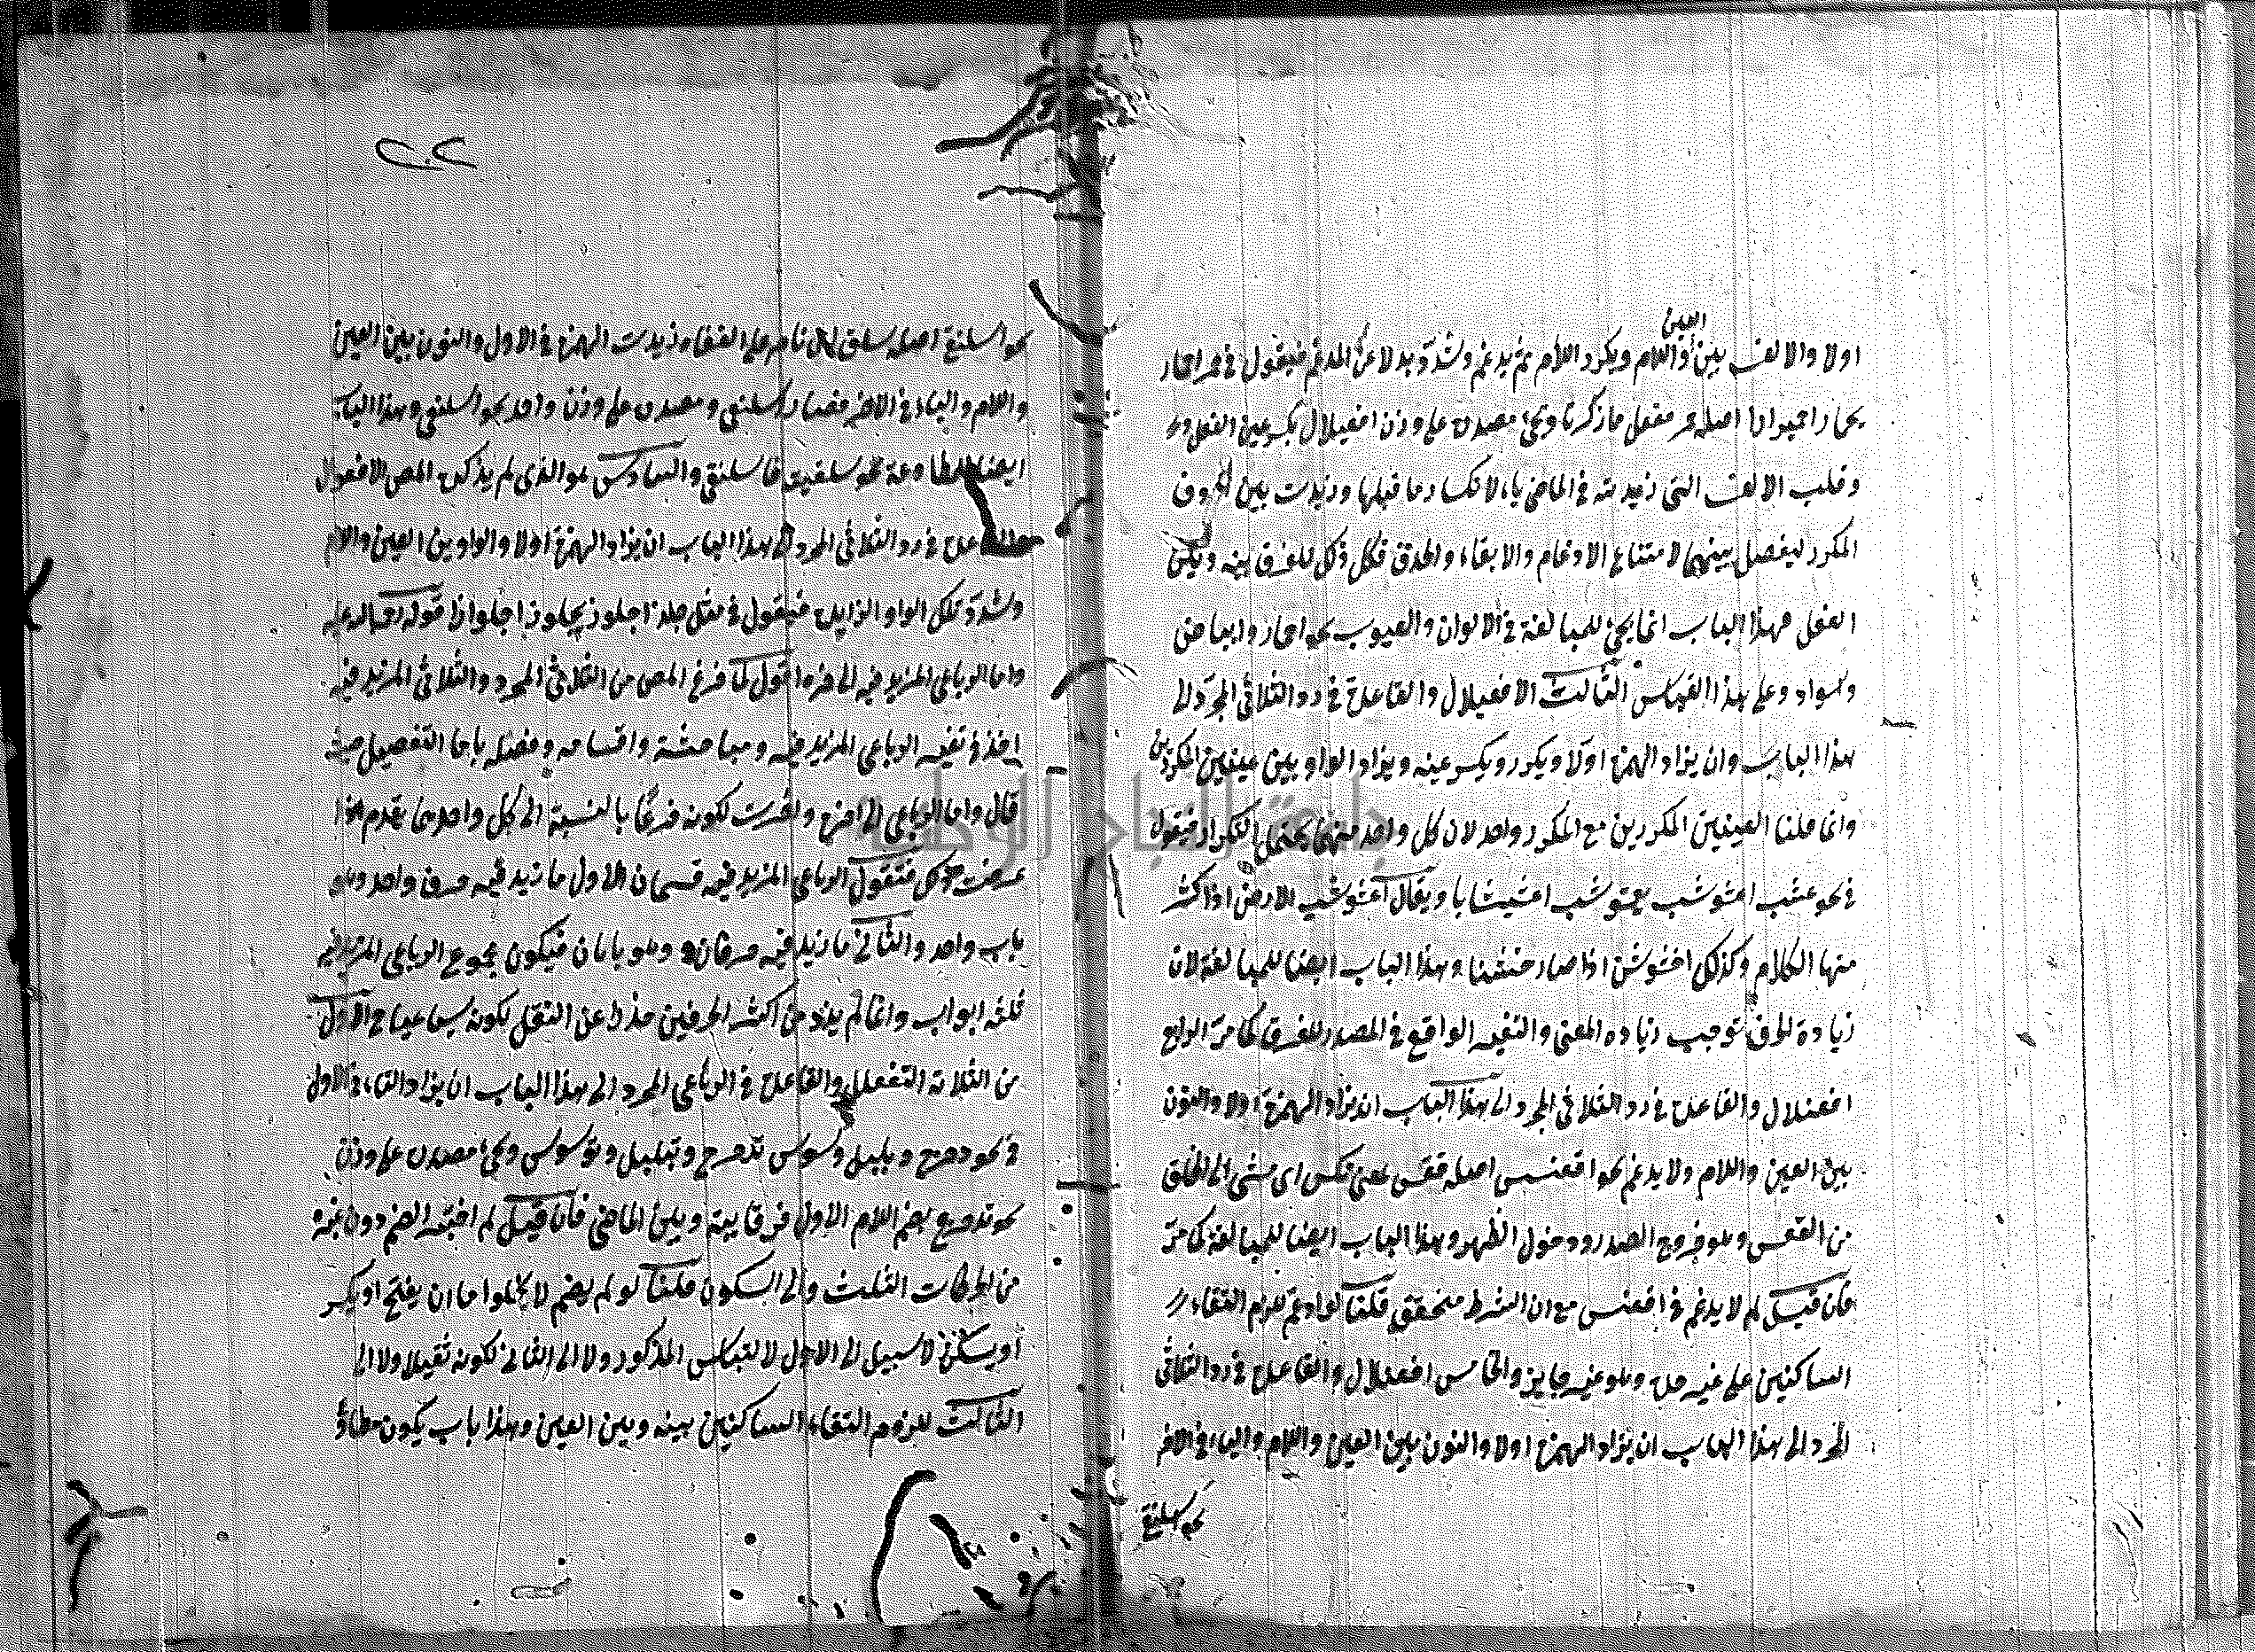 العين
اولا والالف بين واللام ويكرر اللام ثم يدغم وشدة بدلا عن المدغم فيقول في حمر احمار
يحمار احميرارا اصله حمر مفعل ما ذكرنا ويجئ مصدره على وزن افعيلال بكسر عين الفعل
وقلب الالف التي زيدت في الماضي ياء لانكسار ما قبلها وزيدت بين الحروف
المكرر ليفصل بينهما لامتناع الادغام والابقاء والحذف فكل ذلك للفرق بينه وبين
الفعل فهذا الباب انما يجئ للمبالغة في الالوان والعيوب نحو احمار وابياض
واسواد وعلى هذا القياس الثالث الافعيعال والقاعدة في رد الثلاثي المجرد الى
هذا الباب وان يزاد الهمزة اولا ويكرر ويكسر عينه ويزاد الواو بين عينين المكررين
وانما قلنا العينين المكررين مع المكرر واحد لان كل واحد منهما يحتمل التكرار فيقول
في نحو عشب اعشوشب يعشوشب اعشيشابا ويقال اعشوشب الارض اذا كثر
منها الكلام وكذلك اخشوشن اذا صار خشنا وهذا الباب ايضا للمبالغة لان
زيادة الحرف توجب زيادة المعنى والتغير الواقع في المصدر للفرق كما مر الرابع
افعنلال والقاعدة في رد الثلاثي المجرد الى هذا الباب ان يزاد الهمزة اولا والنون
بين العين واللام ولا يدغم نحو اقعنسس اصله قعس بمعنى نكس اى مشى الى الخلق
من القعس وهو خروج الصدر ودخول الظهر وهذا الباب ايضا للمبالغة كما مر
فان قيل لم لا يدغم في اقعنسس مع ان الشرط متحقق قلنا لو ادغم للزم التقاء
الساكنين على غير حده وهو غير جايز والخامس افعنلال والقاعدة في رد الثلاثي
المجرد الى هذا الباب ان يزاد الهمزة اولا والنون بين العين واللام والياء في الاخر
نحو اسلنقى
٢٠٢
نحو اسلنقى اصله سلق اى نام على القفاء زيدت الهمزة في الاول والنون بين العين
واللام والياء في الاخر فصار اسلنقى ومصدره على وزن واحد نحو اسلنقى وهذا الباب
ايضا للمطاوعة نحو سلقيته فاسلنقى والسادس هو الذي لم يذكره المص الافعوال
والقاعدة في رد الثلاثي المجرد الى هذا الباب ان يزاد الهمزة اولا والواو بين العين واللام
وشدة تلك الواو الزايدة فيقول في مثل جلذ اجلوذ يجلوذ اجلواذا قوله رحمه الله عليه
واما الرباعي المزيد فيه الى اخره اقول لما فرغ المص من الثلاثي المجرد والثلاثي المزيد فيه
اخذ في تغير الرباعي المزيد فيه ومباحثه واقسامه وفصله باما التفصيل حيث
قال واما الرباعي الى اخره واخرت لكونه فرعا بالنسبة الى كل واحد مما تقدم اذا
عرفت فنقول الرباعي المزيد فيه قسمان الاول ما زيد فيه حرف واحد وهو
باب واحد والثاني ما زيد فيه حرفان وهو بابان فيكون مجموع الرباعي المزيد فيه
ثلثة ابواب وانما لم يزد من اكثر الحرفين حذرا عن الثقل لكونه سباعيا الاول
من الثلاثة التفعلل والقاعدة في الرباعي المجرد الى هذا الباب ان يزاد التاء في الاول
في نحو دحرج وبلبل وسوس تدحرج وتبلبل وتوسوس ويجئ مصدره على وزن
نحو تدحرج بضم اللام الاول فرقا بينه وبين الماضي فان قيل لم اختير الضم دون غيره
من الحركات الثلث والى السكون قلنا لو لم يضم لا يخلو اما ان يفتح او يكسر
او يسكن لا سبيل الى الاول لالتباس المذكور ولا الى الثاني لكونه ثقيلا ولا الى
الثالث للزوم التقاء الساكنين بينه وبين العين وهذا باب يكون مطاوع